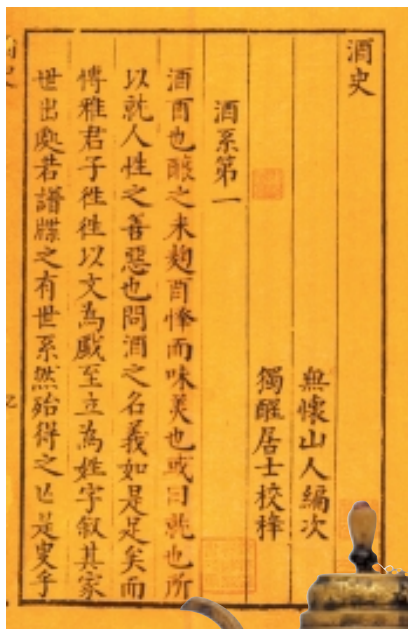 酒史
無懷山人編次
獨醒居士校梓
酒系第一
酒酉也釀之米麴酉懌而味美也或曰就也所
以就人性之善惡也問酒之名義如是足矣而
博雅君子徃徃以文為戲至立為姓字叙其家
世出處若譜牒之有世系然殆得之亡是叟乎